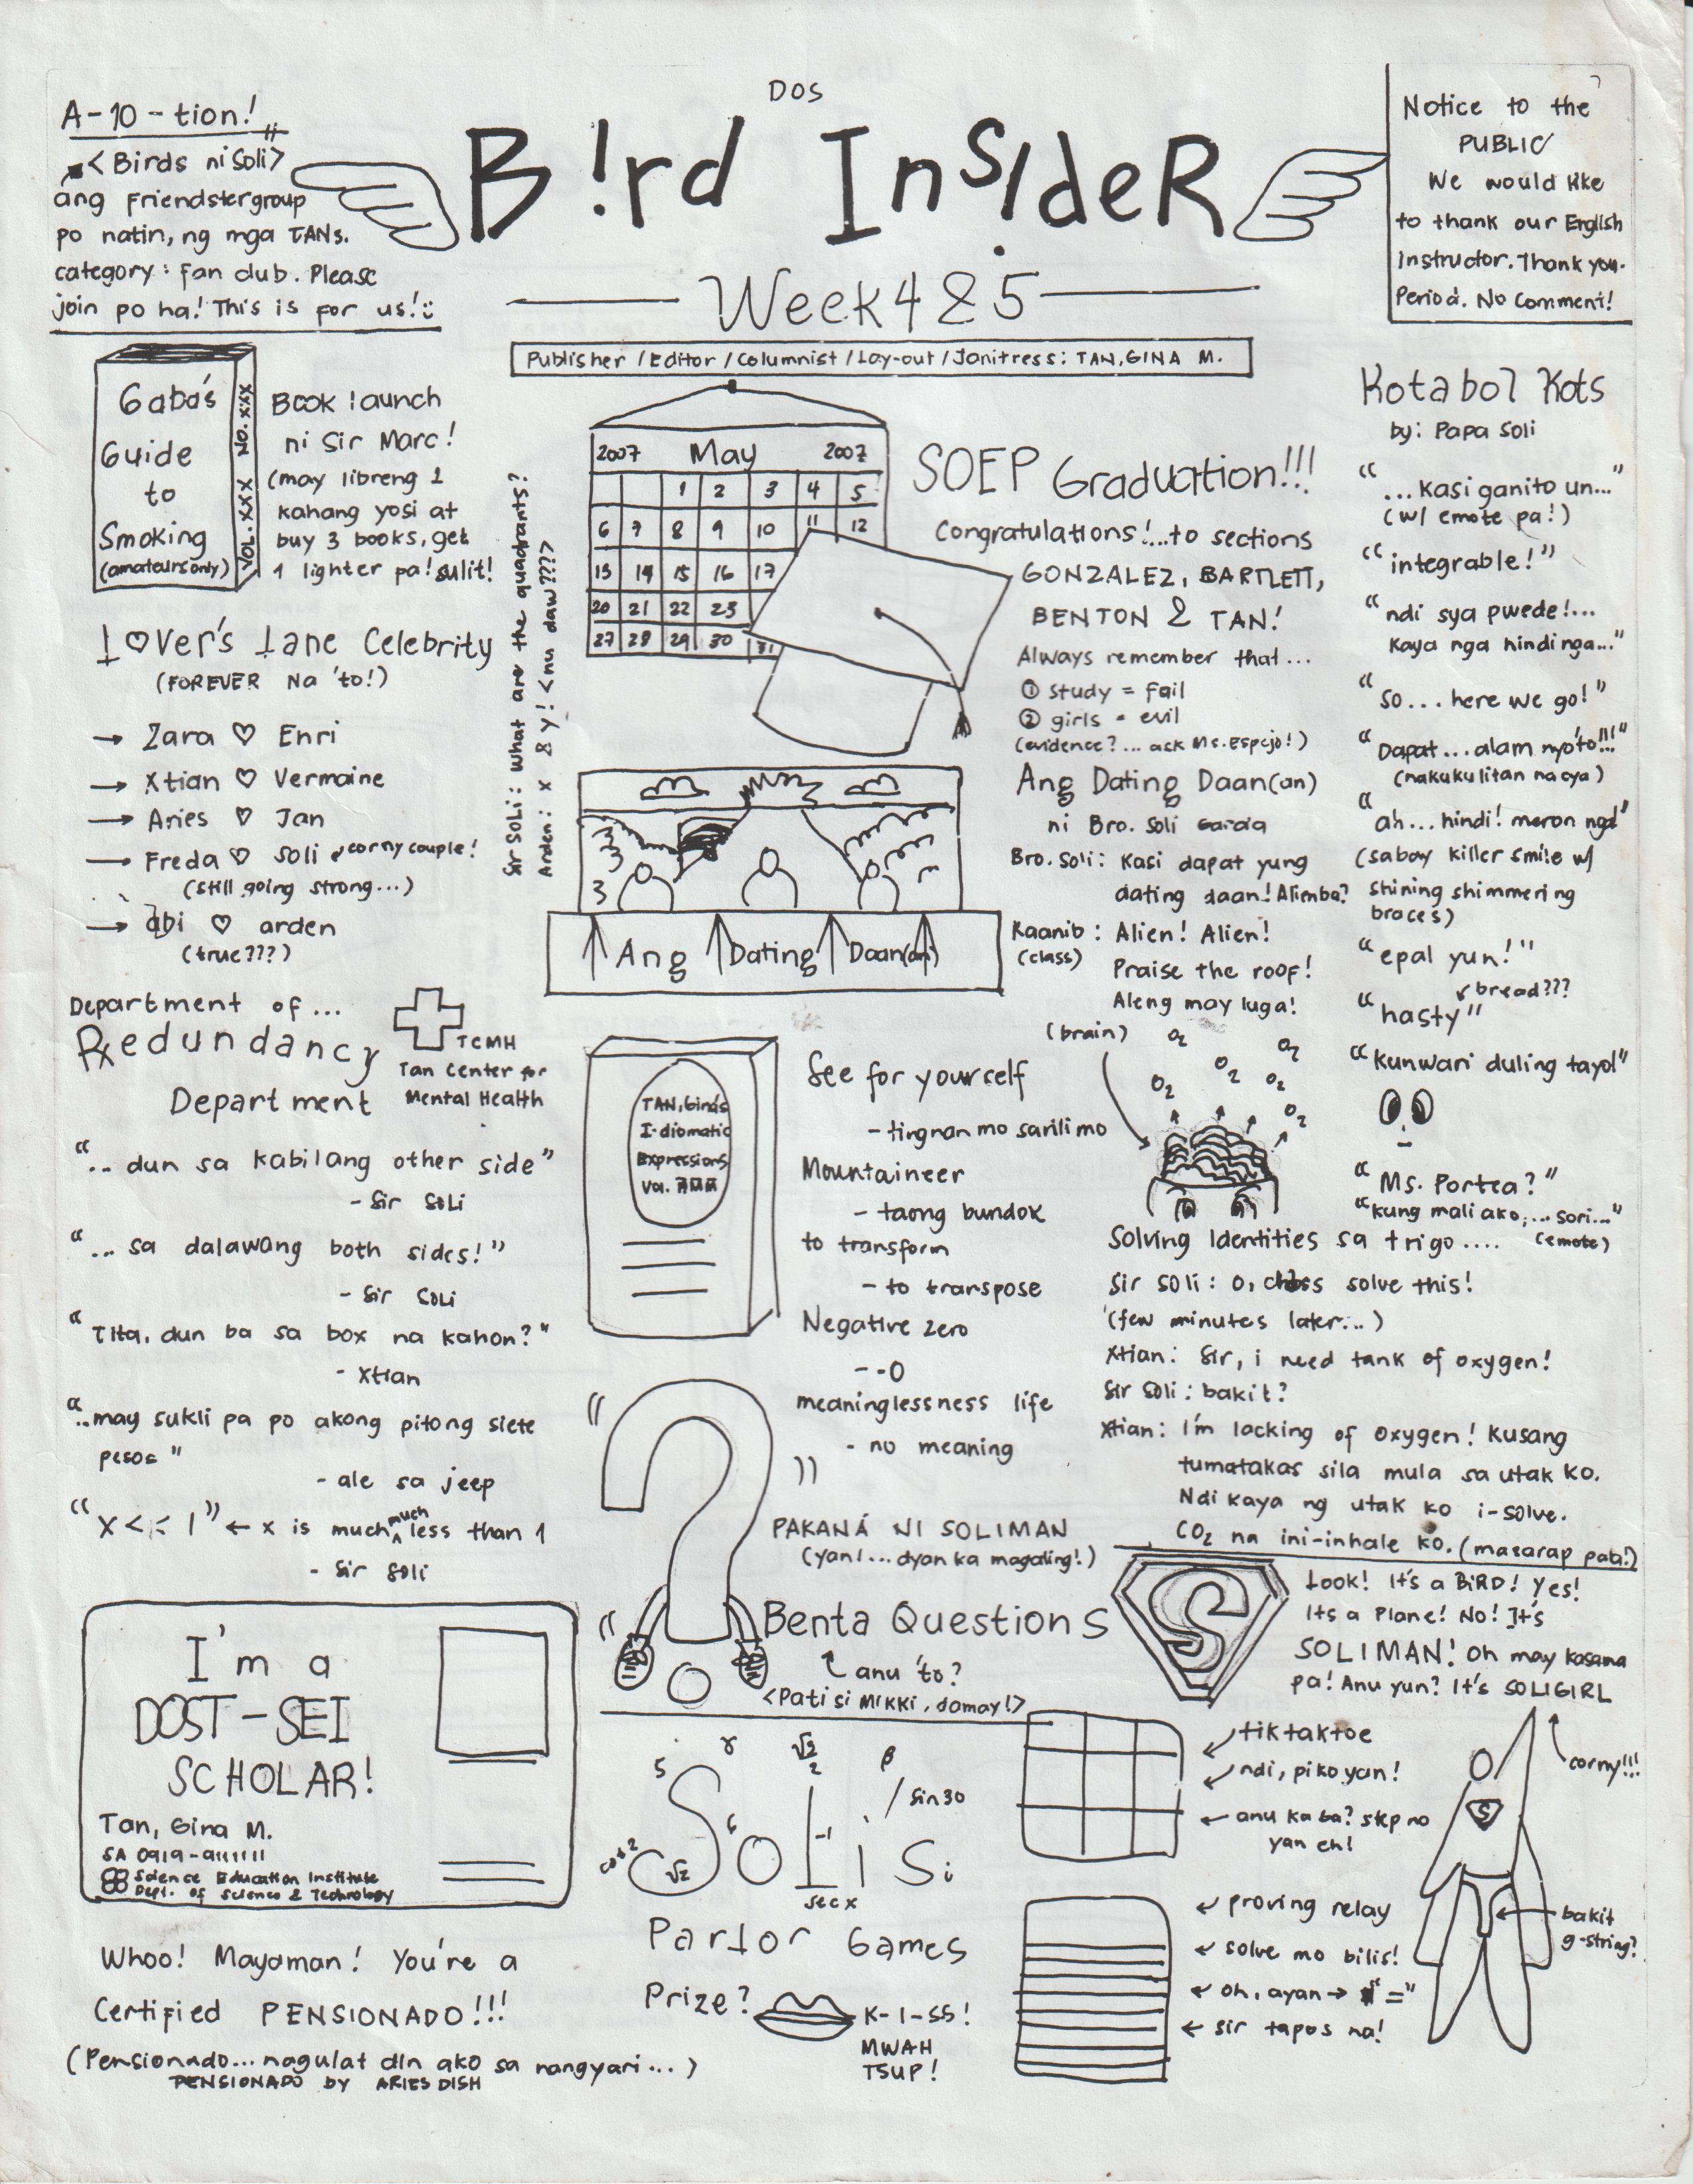 DOS
B!rd InsIdeR
Week 4 & 5
Publisher /Editor /Columnist /Lay-out /Janitress: TAN, GINA M.
A-10-tion!
<Birds ni Soli>
ang Friendster group
po natin, ng mga TANs.
category: fan club. Please
join po ha! This is for us!
Notice to the
PUBLIC
We would like
to thank our English
Instructor. Thank you.
Period. No Comment!
Gaba's
Guide
to
Smoking
(amateurs only)
VOL. XXX NO. XXX
Book launch
ni Sir Marc!
(may libreng 1
kahang yosi at
buy 3 books, get
1 lighter pa! sulit!
Lover's Lane Celebrity
(FOREVER Na 'to!)
→ Zara ♡ Enri
→ Xtian ♡ Vermaine
→ Aries ♡ Jan
→ Freda ♡ Soli corny couple!
(still going strong...)
→ abi ♡ arden
(true???)
Sir Soli: what are the quadrants?
Arden: x & y! <nu daw???>
2007 May 2007
1 2 3 4 5
6 7 8 9 10 11 12
13 14 15 16 17
20 21 22 23
27 28 29 30 31
SOEP Graduation!!!
Congratulations!...to sections
GONZALEZ, BARTLETT,
BENTON & TAN!
Always remember that...
① study = fail
② girls = evil
(evidence?... ask Ms. Espejo!)
Ang Dating Daan(an)
Ang Dating Daan(an)
ni Bro. Soli Garcia
Bro. Soli: Kasi dapat yung
dating daan! Alien ba?
Kaanib: Alien! Alien!
(class) Praise the roof!
Aleng may luga!
Kotabol Kots
by: Papa Soli
"...kasi ganito un..."
(w/ emote pa!)
"integrable!"
"ndi sya pwede!...
Kaya nga hindi nga..."
"so... here we go!"
"Dapat... alam nyo 'to!!!"
(nakukulitan na cya)
"ah... hindi! meron nga"
(sabay killer smile w/
shining shimmering
braces)
"epal yun!"
bread???
"hasty"
"Kunwari duling tayo!"
"Ms. Portea?"
"kung mali ako,... sori..."
(emote)
Department of...
Redundancy
Department
TCMH
Tan Center for
Mental Health
".. dun sa kabilang other side"
- Sir Soli
"... sa dalawang both sides!"
- Sir Soli
"Tita, dun ba sa box na kahon?"
- Xtian
"..may sukli pa po akong pitong siete
pesos"
- ale sa jeep
"x << 1" ← x is much much less than 1
- Sir Soli
TAN, Gina's
I-diomatic
Expressions
Vol.
See for yourself
- tingnan mo sarili mo
Mountaineer
- taong bundok
to transform
- to transpose
Negative zero
- -0
meaninglessness life
- no meaning
(brain)
O2 O2 O2 O2 O2 O2
Solving Identities sa trigo....
Sir Soli: O, class solve this!
(few minutes later...)
Xtian: Sir, i need tank of oxygen!
Sir Soli: bakit?
Xtian: I'm lacking of oxygen! Kusang
tumatakas sila mula sa utak ko.
Ndi kaya ng utak ko i-solve.
CO2 na ini-inhale ko. (masarap pala!)
PAKANÁ NI SOLIMAN
(yan!... dyan ka magaling!)
Benta Questions
anu 'to?
<Pati si MIKKI, damay!>
S
Look! It's a BIRD! Yes!
Its a Plane! No! It's
SOLIMAN! Oh may kasama
pa! Anu yun? It's SOLIGIRL
corny!!!
S
bakit
g-string?
I'm a
DOST-SEI
SCHOLAR!
Tan, Gina M.
SA 0919-9111111
Science Education Institute
Dept. of Science & Technology
Whoo! Mayaman! You're a
Certified PENSIONADO!!!
(Pensionado... nagulat din ako sa nangyari...)
PENSIONADO by ARIES DISH
5 γ √2/2 β / sin 30
cos 2 √2 6 -1
Soli Si
sec x
Parlor Games
Prize? K-I-SS!
MWAH
TSUP!
tiktaktoe
ndi, piko yan!
anu ka ba? step no
yan eh!
proving relay
solve mo bilis!
oh, ayan → "="
sir tapos na!